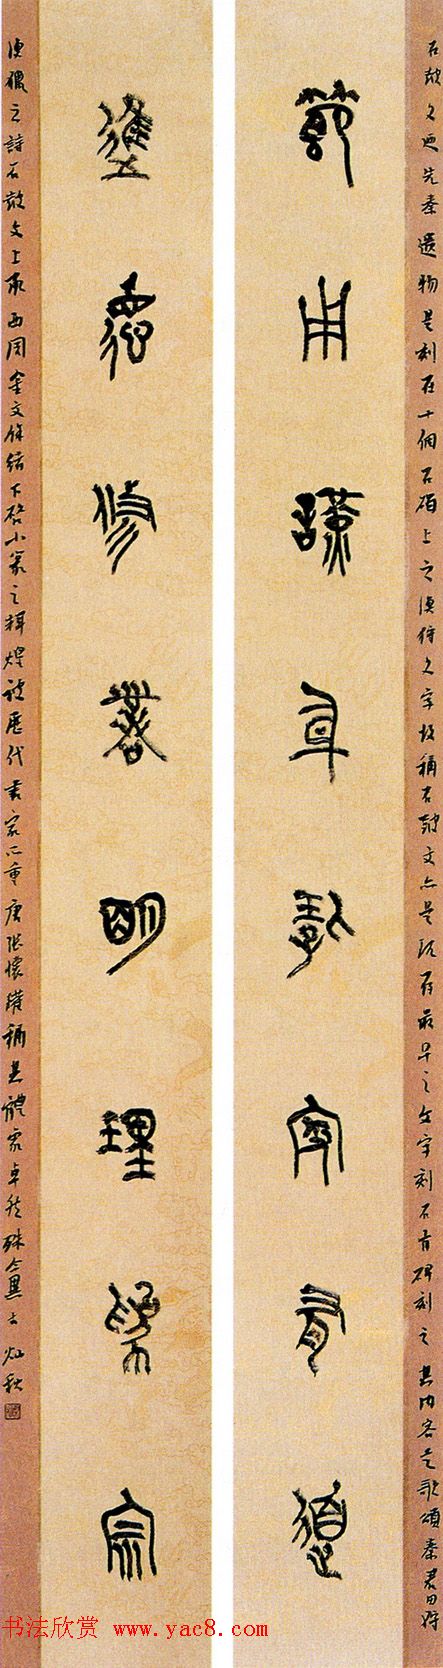 石鼓文迺先秦遺物是刻在十個石碣上之漁狩文字故稱石鼓文亦是現存最早之文字刻石有碑刻之其內容是歌頌秦君田狩
節用謹身執守有道
進德修業明理宗
漁獵之詩石鼓文上承西周金文餘緒下啓小篆之輝煌被歷代書家所重唐張懷瓘稱其體象卓然殊今異古 灿秋
书法欣赏 www.yac8.com